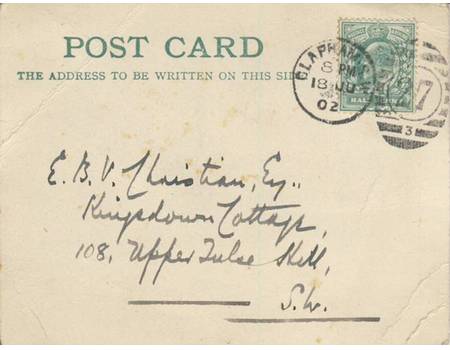 POST CARD
THE ADDRESS TO BE WRITTEN ON THIS SIDE
CLAPHAM
8 PM
18 JU
02
HALFPENNY
7
3
E. B. V. Christian, Esq.,
Kingsdown Cottage,
108, Upper Tulse Hill,
S.W.